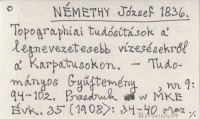 NÉMETHY József 1836.
Topographiai tudósítások a
legnevezetesebb vizesésekről
a Karpatusokon. - Tudo-
mányos Gyűjtemény, nr 9:
94-102. Przedruk w MKE
Évk. 35 (1908): 34-40 oraz